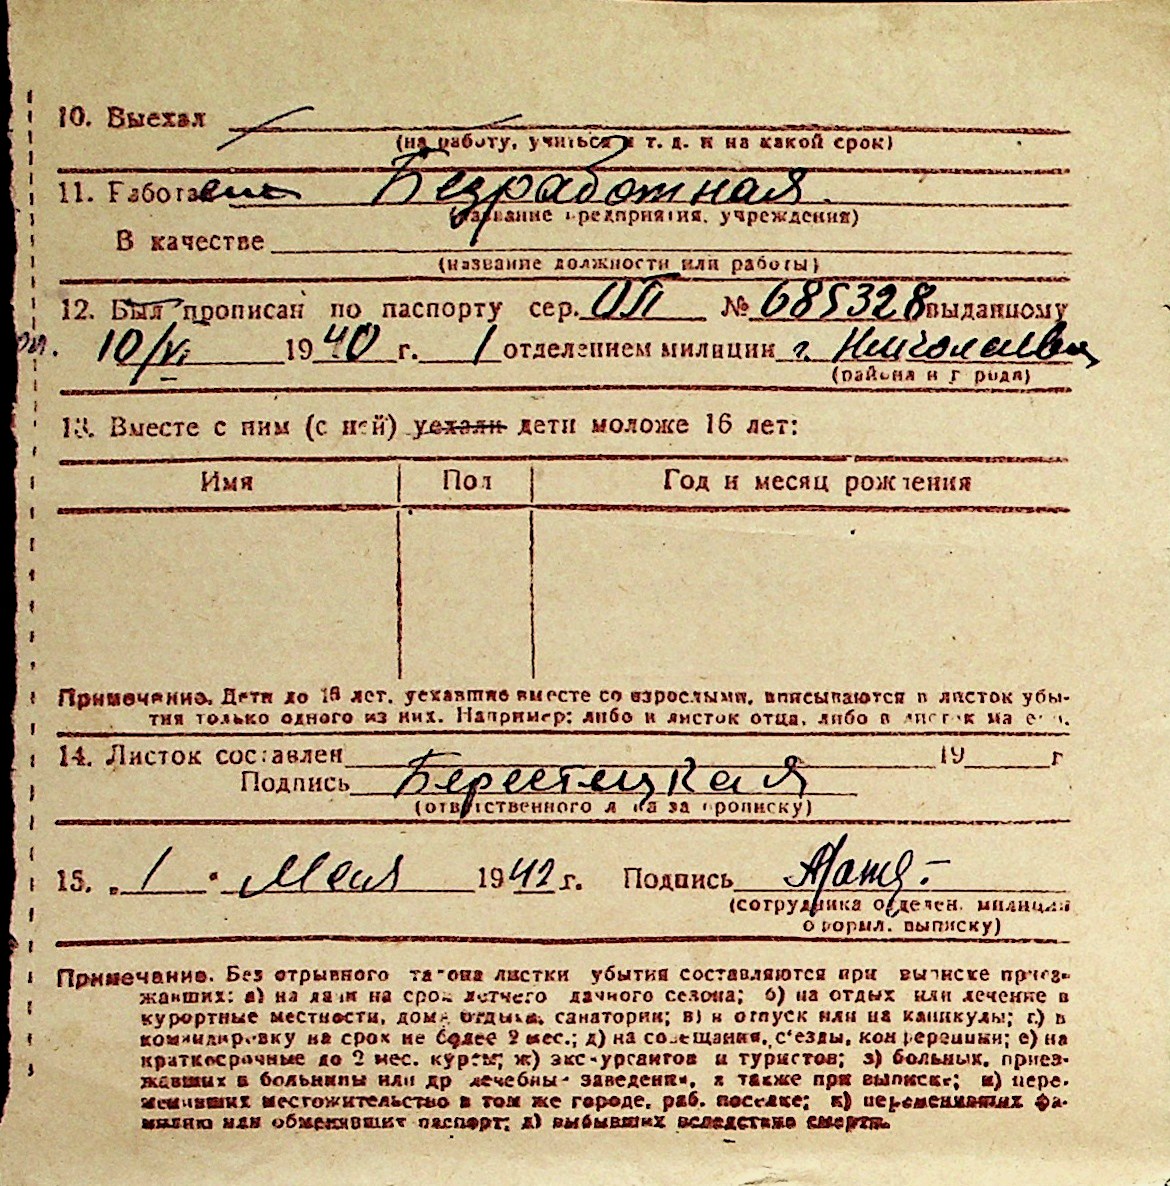 10. Выехал
(на работу, учиться и т. д. и на какой срок)
11. Работает Безработная
(название предприятия, учреждения)
В качестве
(название должности или работы)
12. Был прописан по паспорту сер. ОП № 685328 выданному
10/VI 1940 г. 1 отделением милиции г. Николаева
(района и города)
13. Вместе с ним (с ней) уехали дети моложе 16 лет:
Имя Пол Год и месяц рождения
Примечание. Дети до 16 лет, уехавшие вместе со взрослыми, вписываются в листок убы-
тия только одного из них. Например: либо в листок отца, либо в листок матери.
14. Листок составлен 19 г
Подпись Берестецкая
(ответственного лица за прописку)
15. „1" Мая 1942 г. Подпись
(сотрудника отделен. милиции
оформл. выписку)
Примечание. Без отрывного талона листки убытия составляются при выписке приез-
жавших: а) на дачи на срок летнего дачного сезона; б) на отдых или лечение в
курортные местности, дома отдыха, санатории; в) в отпуск или на каникулы; г) в
командировку на срок не более 2 мес.; д) на совещания, съезды, конференции; е) на
краткосрочные до 2 мес. курсы; ж) экскурсантов и туристов; з) больных, приез-
жавших в больницы или др лечебные заведения, а также при выписке; и) пере-
менивших местожительство в том же городе, раб. поселке; к) переменивших фа-
милию или обменявших паспорт; л) выбывших вследствие смерти.